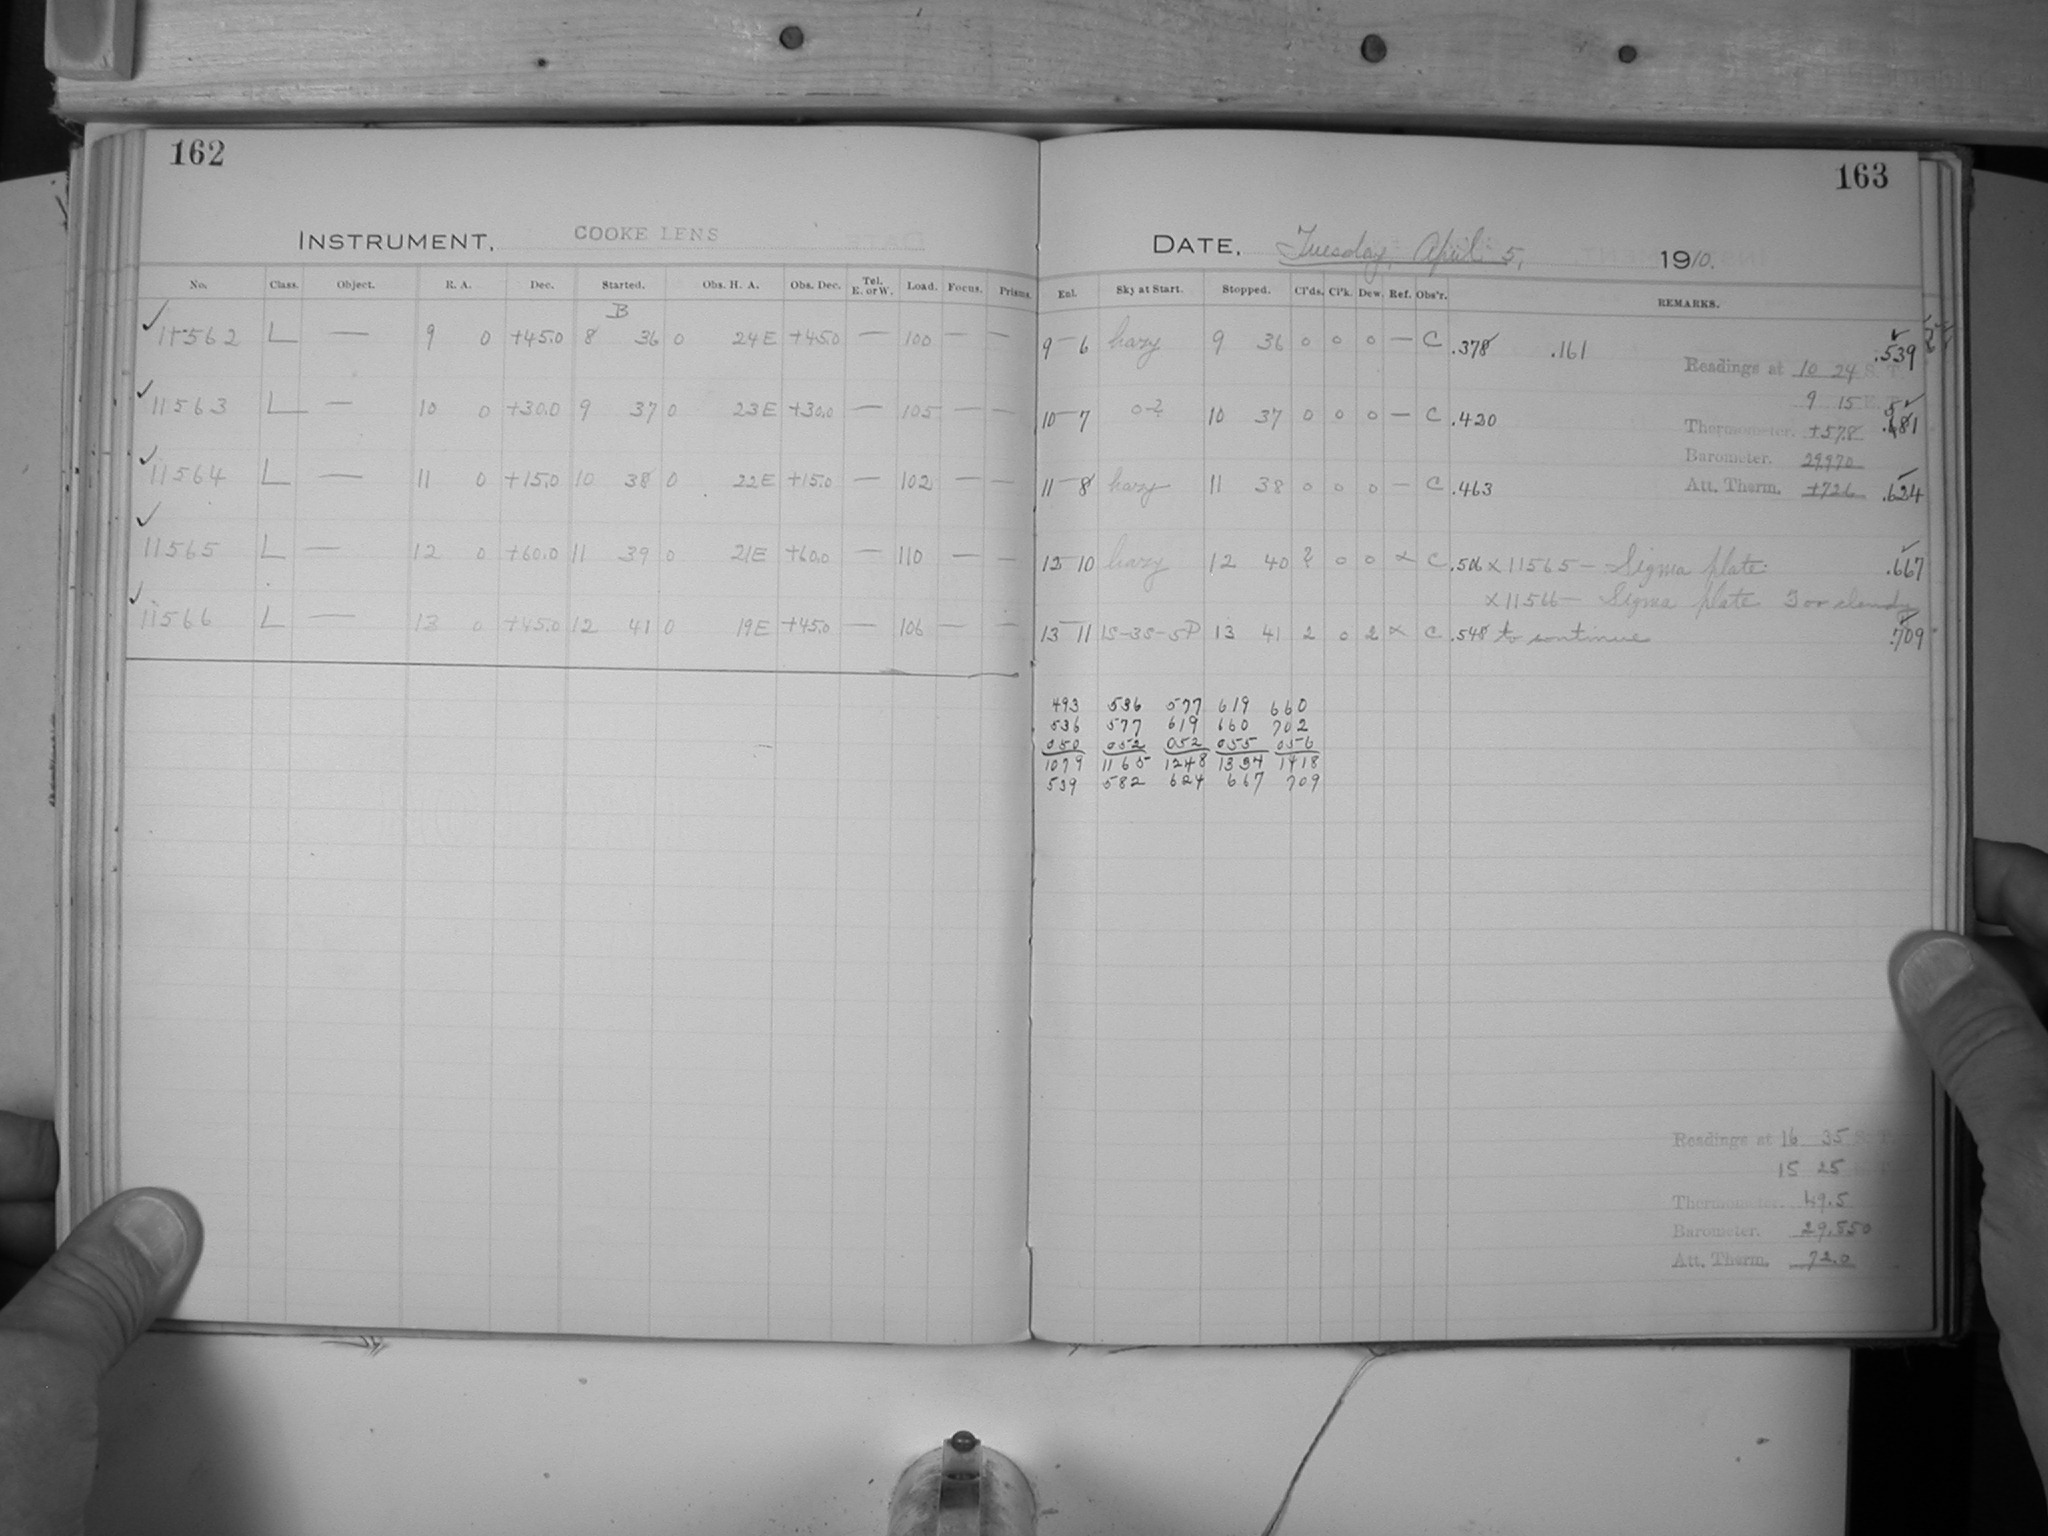 162
INSTRUMENT. COOKE LENS
No. Class. Object. R. A. Dec. Started. Obs. H. A. Obs. Dec. Tel. E. or W. Load. Focus. Prisms.
B
11562 L — 9 0 +45.0 8 36 0 24E +45.0 — 100 — —
11563 L — 10 0 +30.0 9 37 0 23E +30.0 — 105 — —
11564 L — 11 0 +15.0 10 38 0 22E +15.0 — 102 — —
11565 L — 12 0 +60.0 11 39 0 21E +60.0 — 110 — —
11566 L — 13 0 +45.0 12 41 0 19E +45.0 — 106 — —
163
DATE. Tuesday, April 5, 1910.
Enl. Sky at Start. Stopped. Cl'ds. Cl'k. Dew. Ref. Obs'r. REMARKS.
9 6 hazy 9 36 0 0 0 — C .378 .161 .539
Readings at 10 24 S. T.
9 15 E. T.
10 7 0-? 10 37 0 0 0 — C .420
Thermometer. +57.8
Barometer. 29.970
11 8 hazy 11 38 0 0 0 — C .463 Att. Therm. +72.6 .624
12 10 hazy 12 40 ? 0 0 × C .506 × 11565 — Sigma plate .667
× 11566 — Sigma plate Too cloudy
13 11 1S-3S-5P 13 41 2 0 2 × C .548 to continue .709
493 536 577 619 660
536 577 619 660 702
050 052 052 055 056
1079 1165 1248 1334 1418
539 582 624 667 709
Readings at 16 35 S. T.
15 25
Thermometer. 49.5
Barometer. 29.850
Att. Therm. 72.0